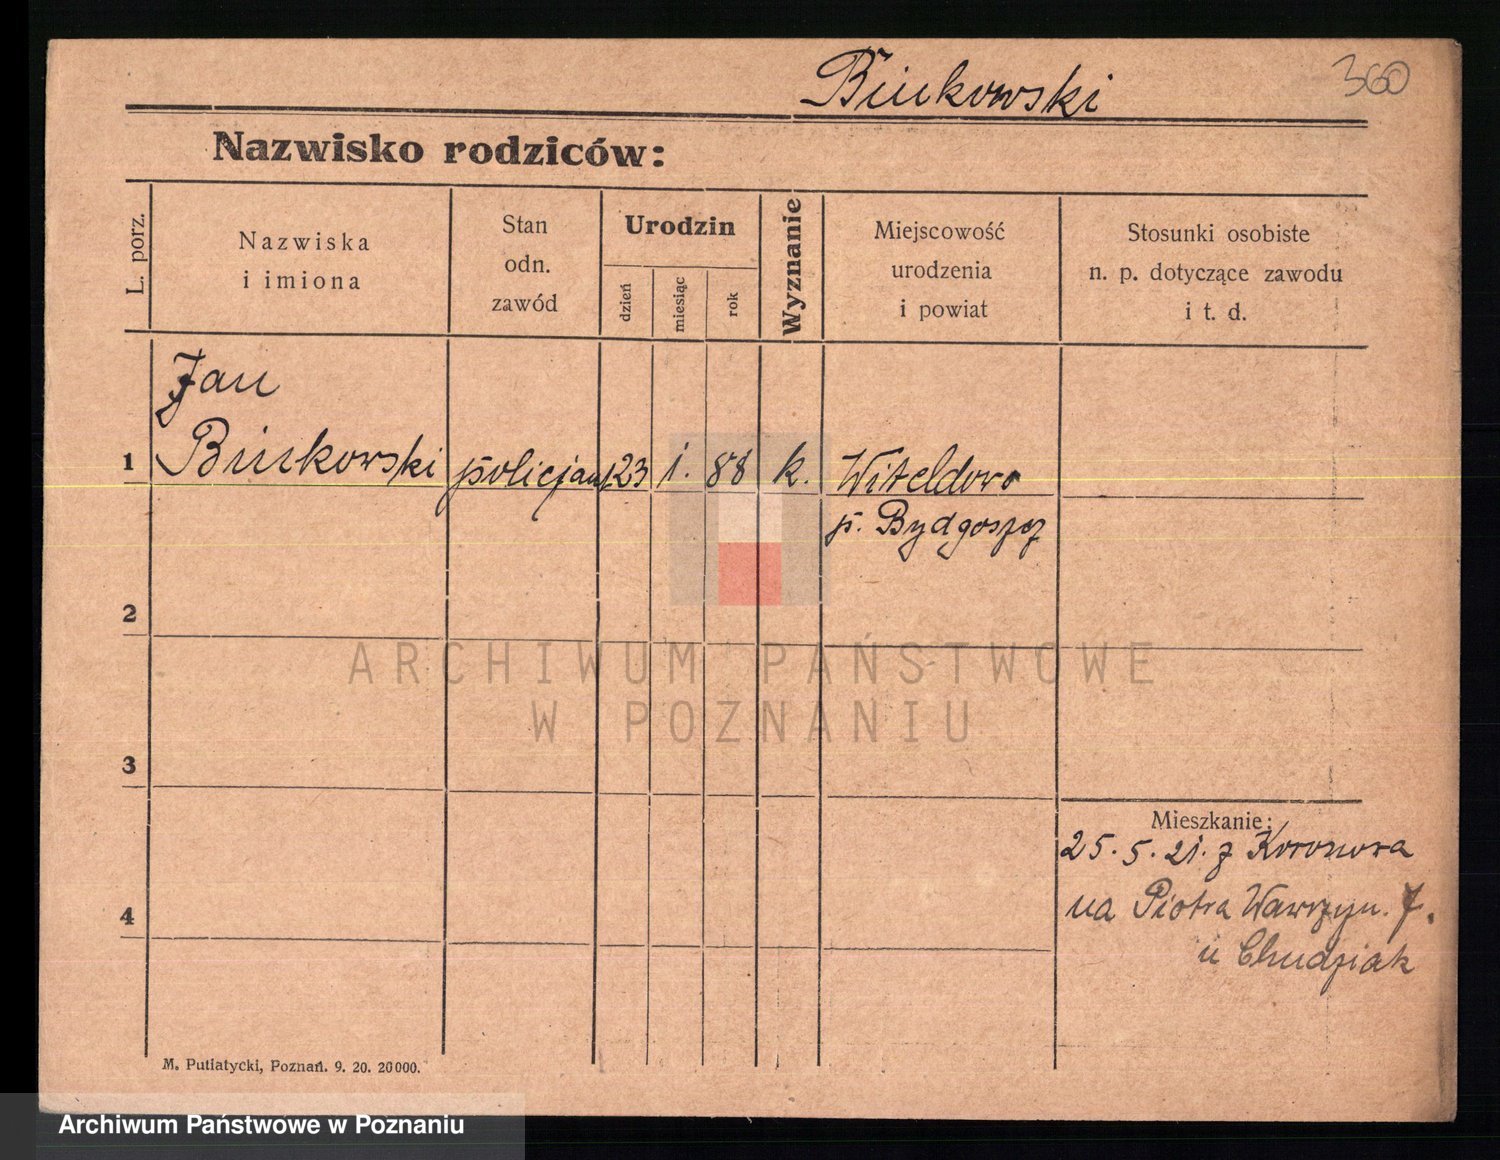 360
Binkowski
Nazwisko rodziców:
L. porz.
Nazwiska
i imiona
Stan
odn.
zawód
Urodzin
dzień
miesiąc
rok
Wyznanie
Miejscowość
urodzenia
i powiat
Stosunki osobiste
n. p. dotyczące zawodu
i t. d.
Jan
1 Binkowski policjant 23 1. 88 k. Witoldowo
p. Bydgoszcz
2
ARCHIWUM PAŃSTWOWE
W POZNANIU
3
Mieszkanie:
25. 5. 21. z Koronowa
4 na Piotra Wawrzyn. 7.
u Chudziak
M. Putiatycki, Poznań. 9. 20. 20000.
Archiwum Państwowe w Poznaniu